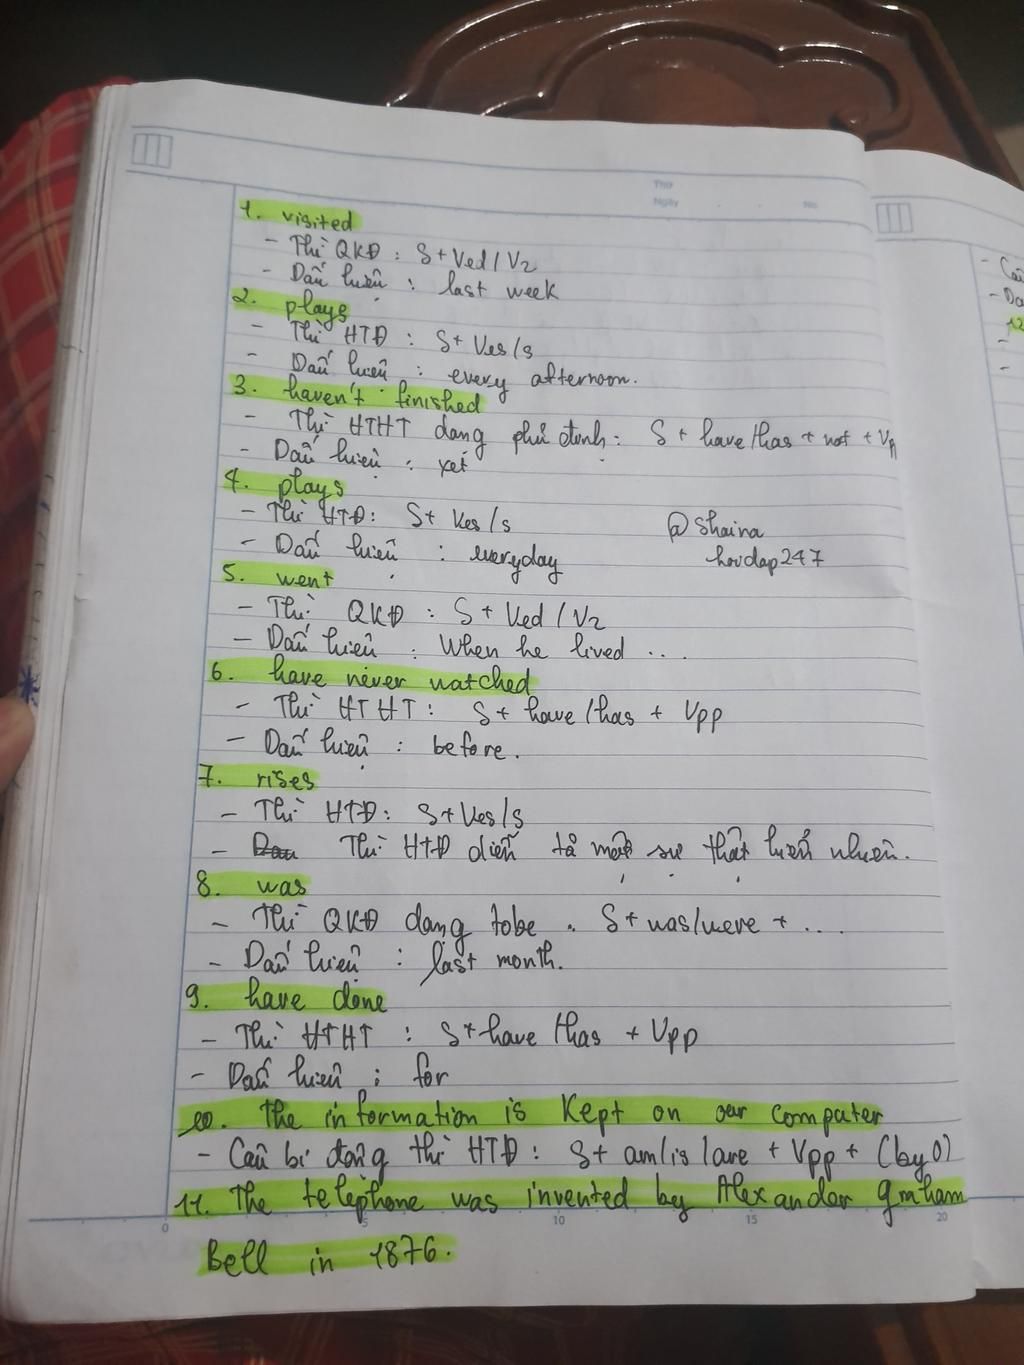 Thứ
Ngày
No
1. visited
- Thì QKĐ : S + Ved / V2
- Dấu hiệu : last week
2. plays
- Thì HTĐ : S + Ves/s
- Dấu hiệu : every afternoon.
3. haven't finished
- Thì HTHT dạng phủ định : S + have/has + not + Vp
- Dấu hiệu : yet
4. plays
- Thì HTĐ : S + Ves/s
@Shaina
- Dấu hiệu : everyday
hoidap247
5. went
- Thì QKĐ : S + Ved / V2
- Dấu hiệu : When he lived ...
6. have never watched
- Thì HTHT : S + have/has + Vpp
- Dấu hiệu : before.
7. rises
- Thì HTĐ : S + Ves/s
- Thì HTĐ diễn tả một sự thật hiển nhiên.
8. was
- Thì QKĐ dạng tobe : S + was/were + ...
- Dấu hiệu : last month.
9. have done
- Thì HTHT : S + have/has + Vpp
- Dấu hiệu : for
10. The information is kept on our computer
- Câu bị động thì HTĐ : S + am/is/are + Vpp + (by O)
11. The telephone was invented by Alexander Graham
Bell in 1876.
0 5 10 15 20
- Câ
- Dấ
12
-
-